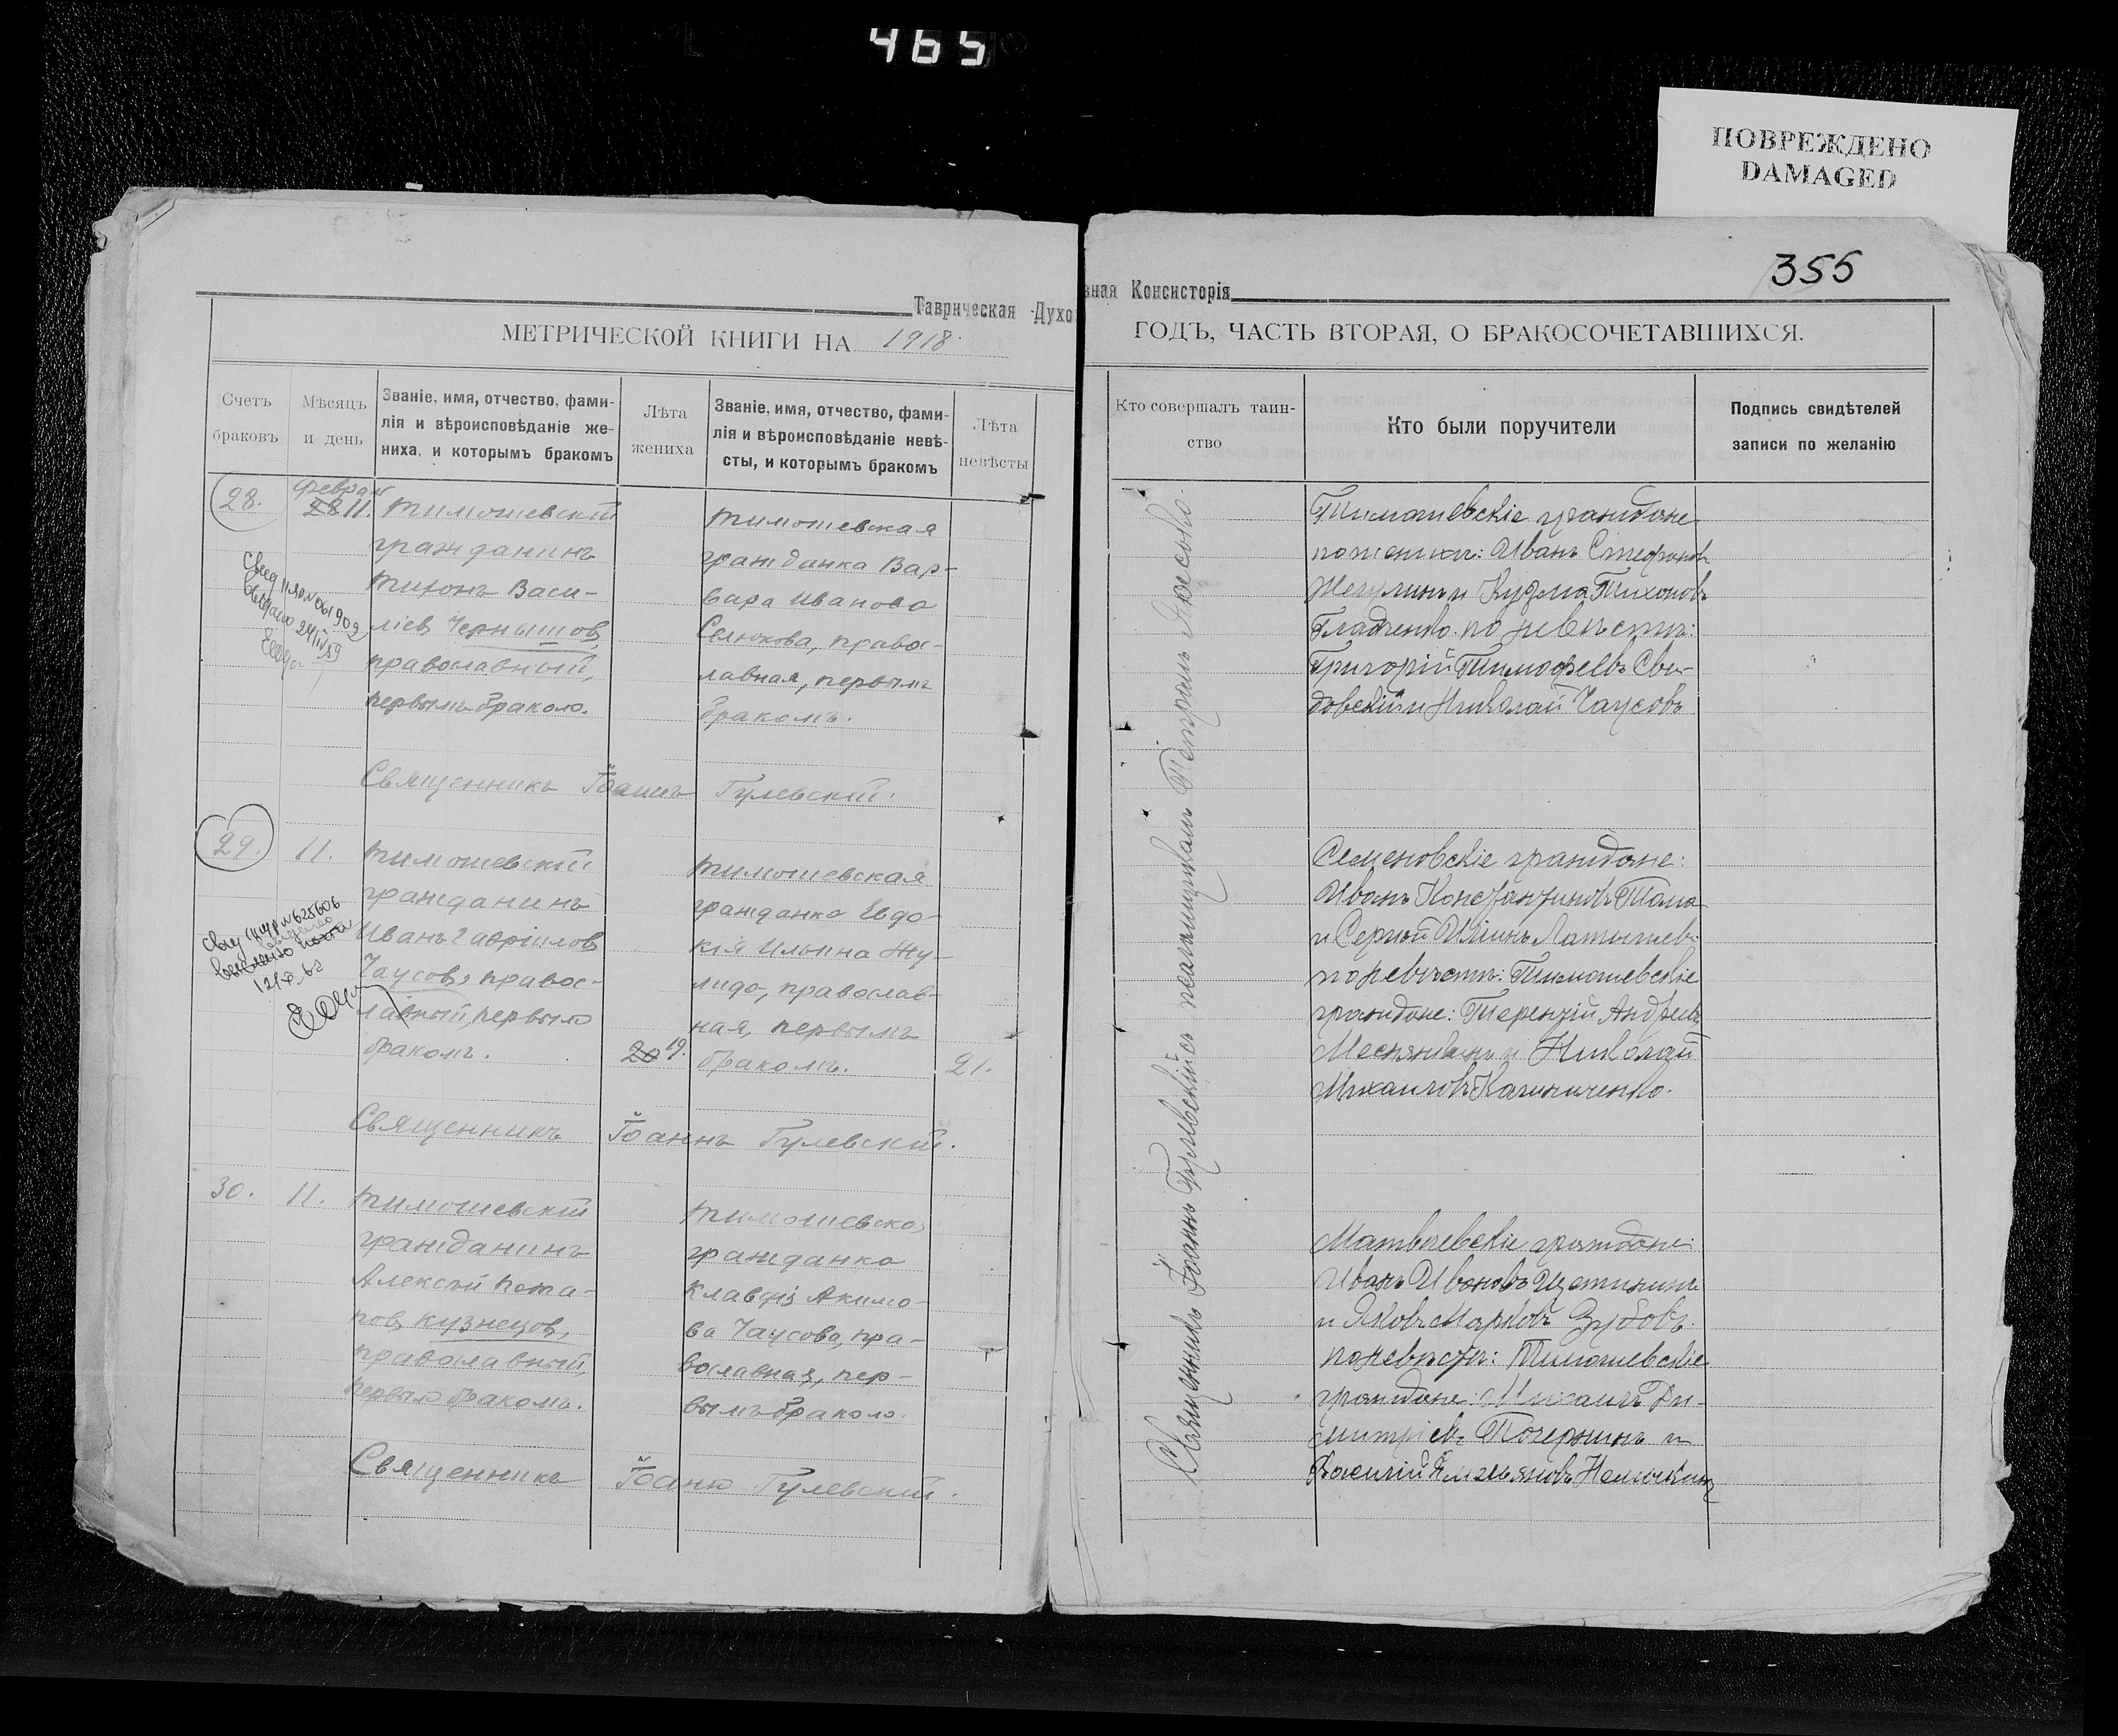 465
ПОВРЕЖДЕНО
DAMAGED
355
Таврическая Духо
вная Консисторія
МЕТРИЧЕСКОЙ КНИГИ НА 1918.
ГОДЪ, ЧАСТЬ ВТОРАЯ, О БРАКОСОЧЕТАВШИХСЯ.
Счетъ
браковъ
Мѣсяцъ
и день
Званіе, имя, отчество, фами-
лія и вѣроисповѣданіе же-
ниха, и которымъ бракомъ
Лѣта
жениха
Званіе, имя, отчество, фами-
лія и вѣроисповѣданіе невѣ-
сты, и которымъ бракомъ
Лѣта
невѣсты
Кто совершалъ таин-
ство
Кто были поручители
Подпись свидѣтелей
записи по желанію
28.
11.
Тимошевскій
гражданинъ
Тихонъ Васи-
ліевъ Чернышов,
православный,
первымъ браком.
Тимошевская
гражданка Вар-
вара Иванова
Селюкова, правос-
лавная, первымъ
бракомъ.
Священникъ Іоаннъ Гулевскій.
Тимашевскіе граждане
по женихѣ: Иванъ Стефановъ
и Кузма Тихоновъ
Гладченко. по невѣстѣ:
Григорій Тимофеевъ Сви-
довскій и Николай Чаусовъ
29.
11.
Тимошевскій
гражданинъ
Иванъ Гавріилов
Чаусовъ, правос-
лавный, первым
бракомъ.
20 19.
Тимошевская
гражданка Евдо-
кія Ильина Жу-
лидо, православ-
ная, первымъ
бракомъ.
21.
Священникъ Іоаннъ Гулевскій.
Семеновскіе граждане:
Иванъ Константиновъ
и Сергѣй Ильинъ Латышевъ
по невѣстѣ: Тимашевскіе
граждане: Терентій Андреевъ
и Николай
Михаиловъ Калиниченко.
30.
11.
Тимошевскій
гражданинъ
Алексѣй Пота-
повъ Кузнецов,
православный,
первым бракомъ.
гражданка
Клавдія Акимо-
ва Чаусова, пра-
вославная, пер-
вымъ браком.
Священникъ Іоанн Гулевскій.
Матвѣевскіе граждане:
Иванъ Ивановъ Щетининъ
и Яковъ Марковъ Зубовъ.
по невѣстѣ: Тимашевскіе
граждане: Михаилъ Ди-
митріевъ и
Василій Емельяновъ
Священникъ Іоаннъ Гулевскій съ псаломщикомъ Петромъ